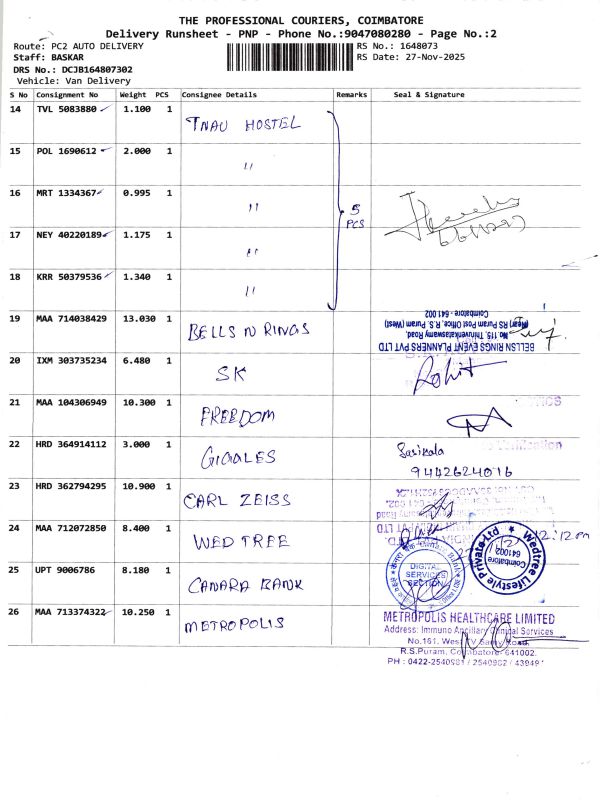 THE PROFESSIONAL COURIERS, COIMBATORE
Delivery Runsheet - PNP - Phone No.:9047080280 - Page No.:2
Route: PC2 AUTO DELIVERY
RS No.: 1648073
Staff: BASKAR
RS Date: 27-Nov-2025
DRS No.: DCJB164807302
Vehicle: Van Delivery
S No Consignment No Weight PCS Consignee Details Remarks Seal & Signature
14 TVL 5083880 1.100 1 TNAU HOSTEL
15 POL 1690612 2.000 1 "
16 MRT 1334367 0.995 1 "
5 PCS
17 NEY 40220189 1.175 1 "
18 KRR 50379536 1.340 1 "
19 MAA 714038429 13.030 1 BELLS N RINGS
BELLSN RINGS EVENT PLANNERS PVT LTD
No. 115, Thiruvenkataswamy Road,
(Near) RS Puram Post Office, R.S. Puram (West)
Coimbatore - 641 002
20 IXM 303735234 6.480 1 SK Rohit
21 MAA 104306949 10.300 1 FREEDOM
22 HRD 364914112 3.000 1 GIGGLES Sasikala
9442624016
23 HRD 362794295 10.900 1 CARL ZEISS
24 MAA 712072850 8.400 1 WED TREE
Wedtree Lifestyle Private Ltd
Coimbatore
641002
12:12pm
25 UPT 9006786 8.180 1 CANARA BANK
DIGITAL
SERVICES
SECTION
26 MAA 713374322 10.250 1 METROPOLIS
METROPOLIS HEALTHCARE LIMITED
Address: Immuno Ancillary Clinical Services
No.161, West TV Samy Road,
R.S.Puram, Coimbatore- 641002.
PH : 0422-2540981 / 2540982 /